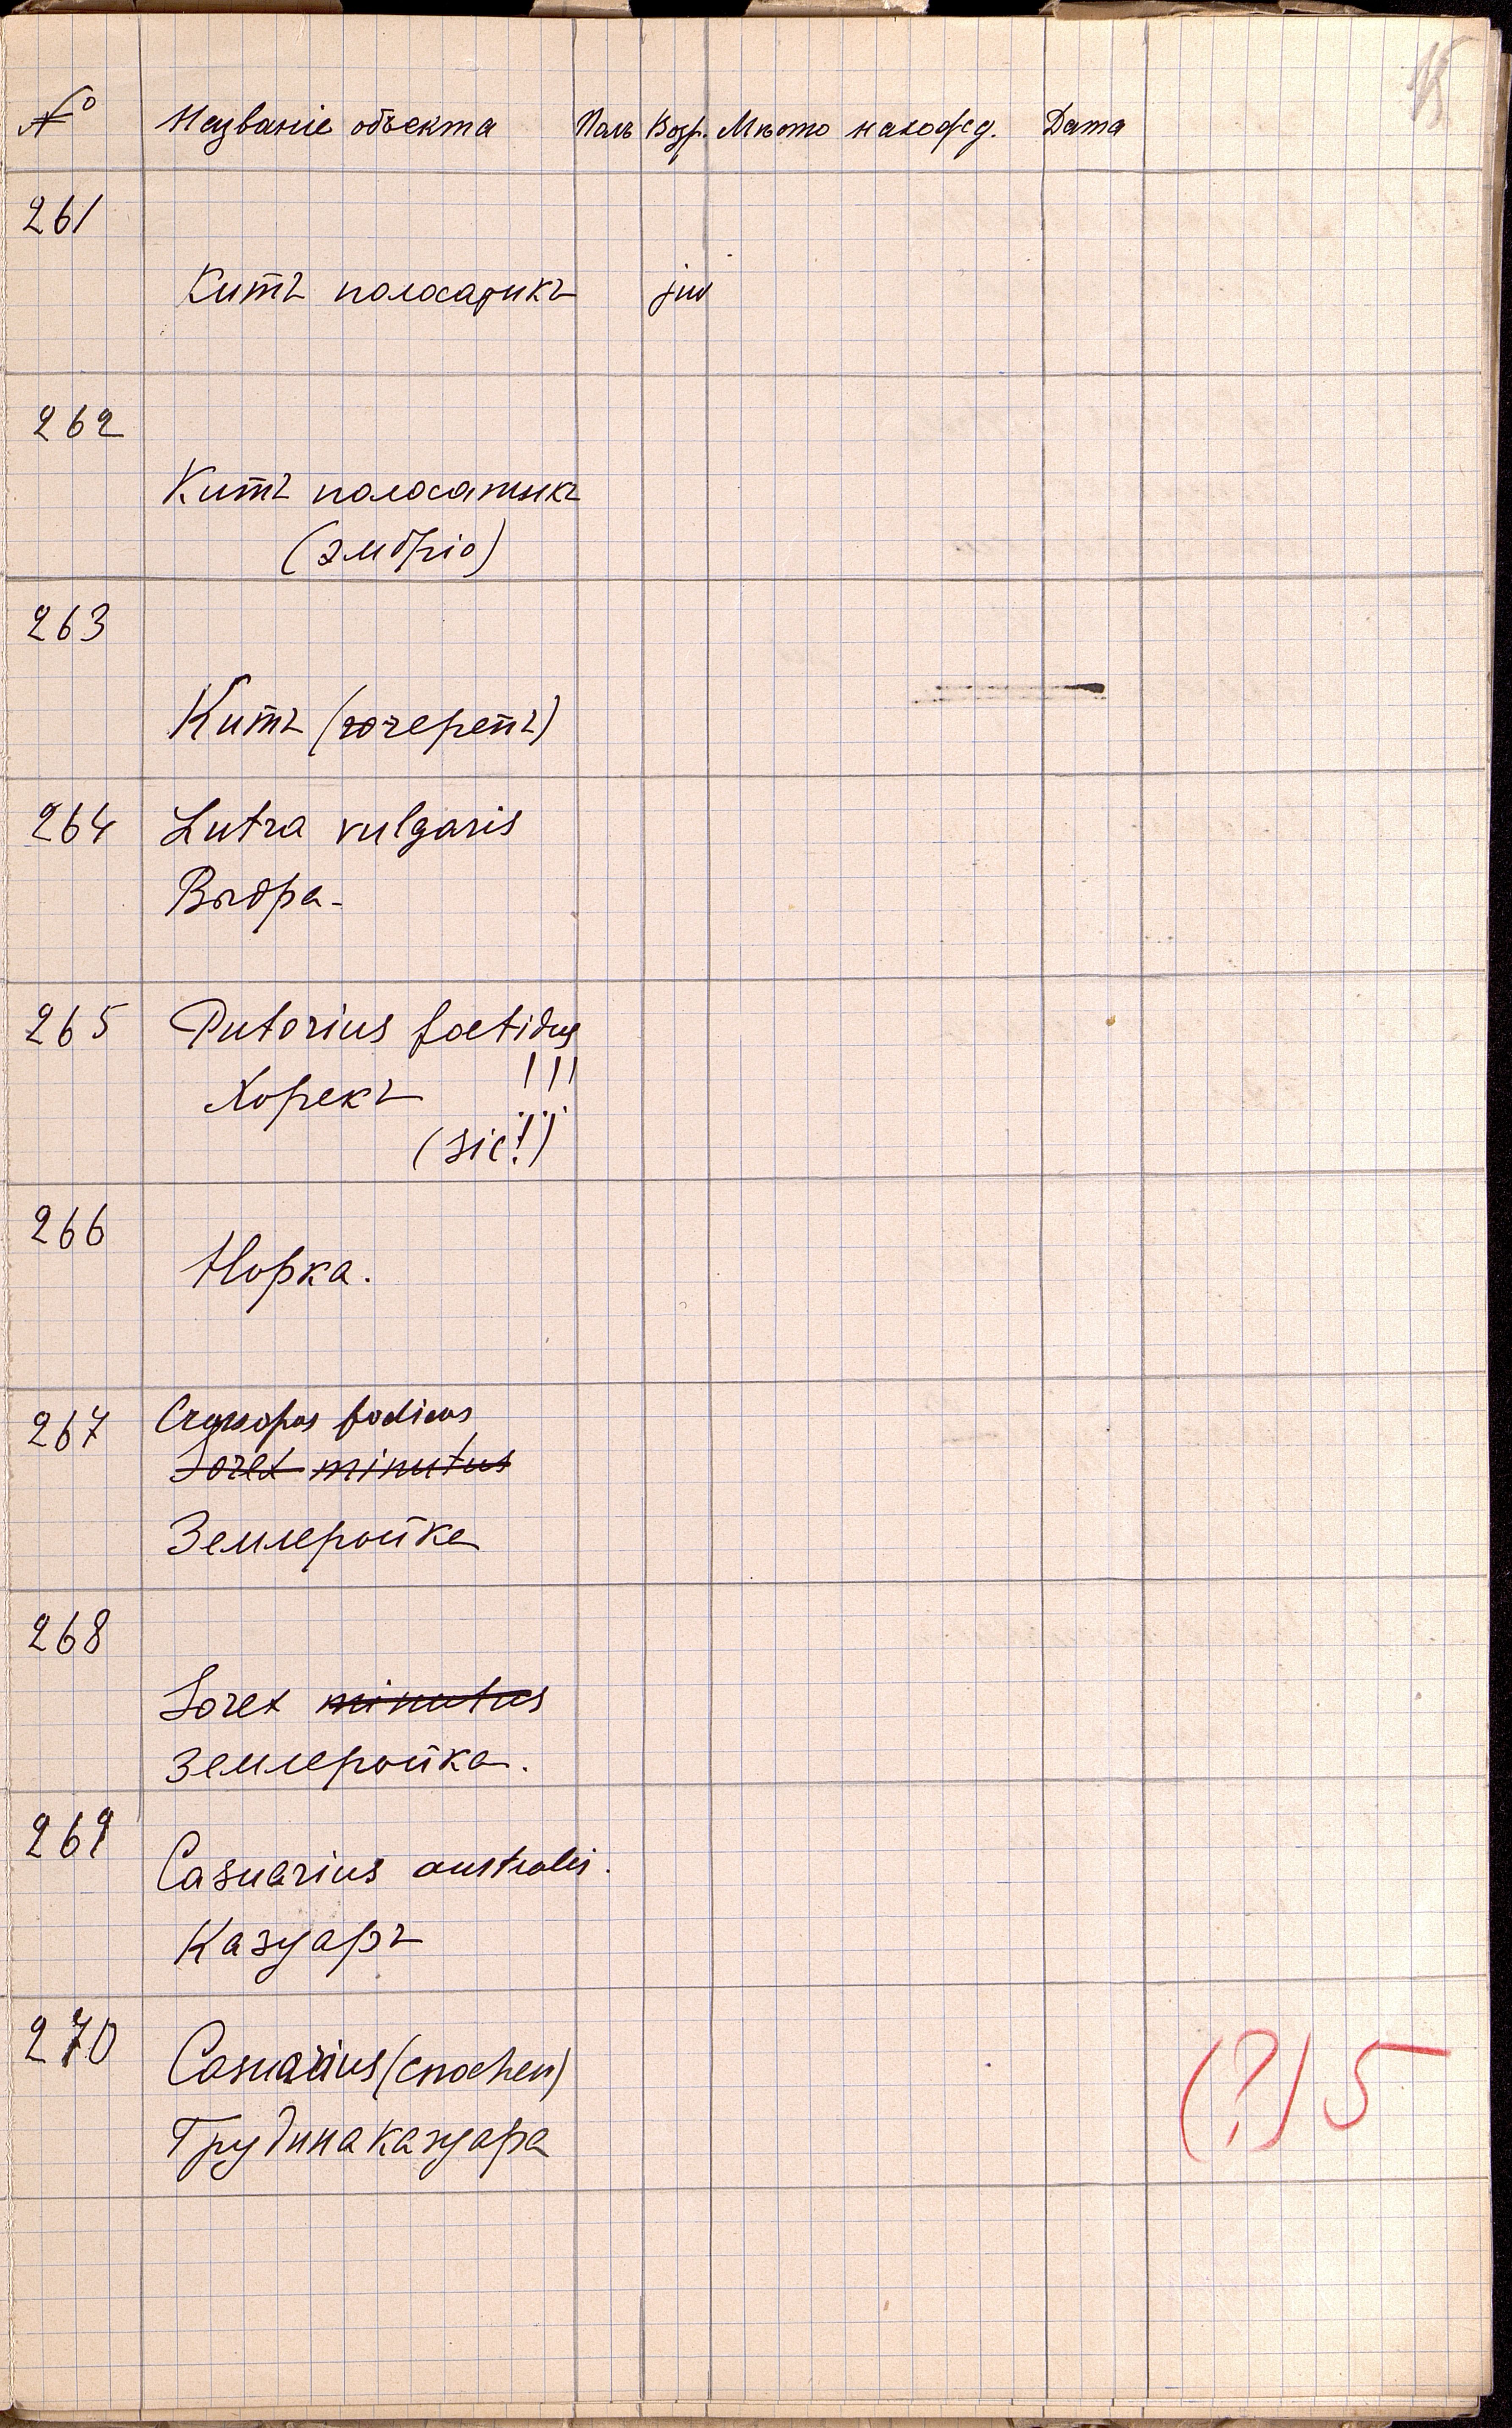 № Названіе объекта Полъ Возр. Мѣсто нахожд. Дата
15
261
Китъ полосатикъ juv
262
Китъ полосатикъ
(эмбріо)
263
Китъ (черепъ)
264 Lutra vulgaris
Выдра.
265 Putorius foetidus
Хорекъ !!!
(sic!)
266
Норка.
267 Crossopus fodiens
Sorex minutus
Землеройка
268
Sorex minutus
Землеройка.
269
Casuarius australis.
Казуаръ
270
Casuarius
Грудина казуара
(?) 5